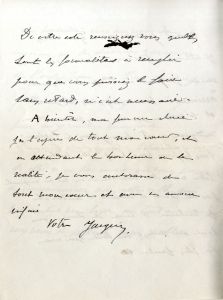 De votre côté renseignez vous quelles
sont les formalités à remplir
pour que vous puissiez le faire
sans retard, si c'est nécessaire.
A bientôt, ma
je l'espère de tout mon cœur, et
en attendant le bonheur de la
réalité, je vous embrasse de
tout mon cœur et avec un amour
infini
Votre Jacques